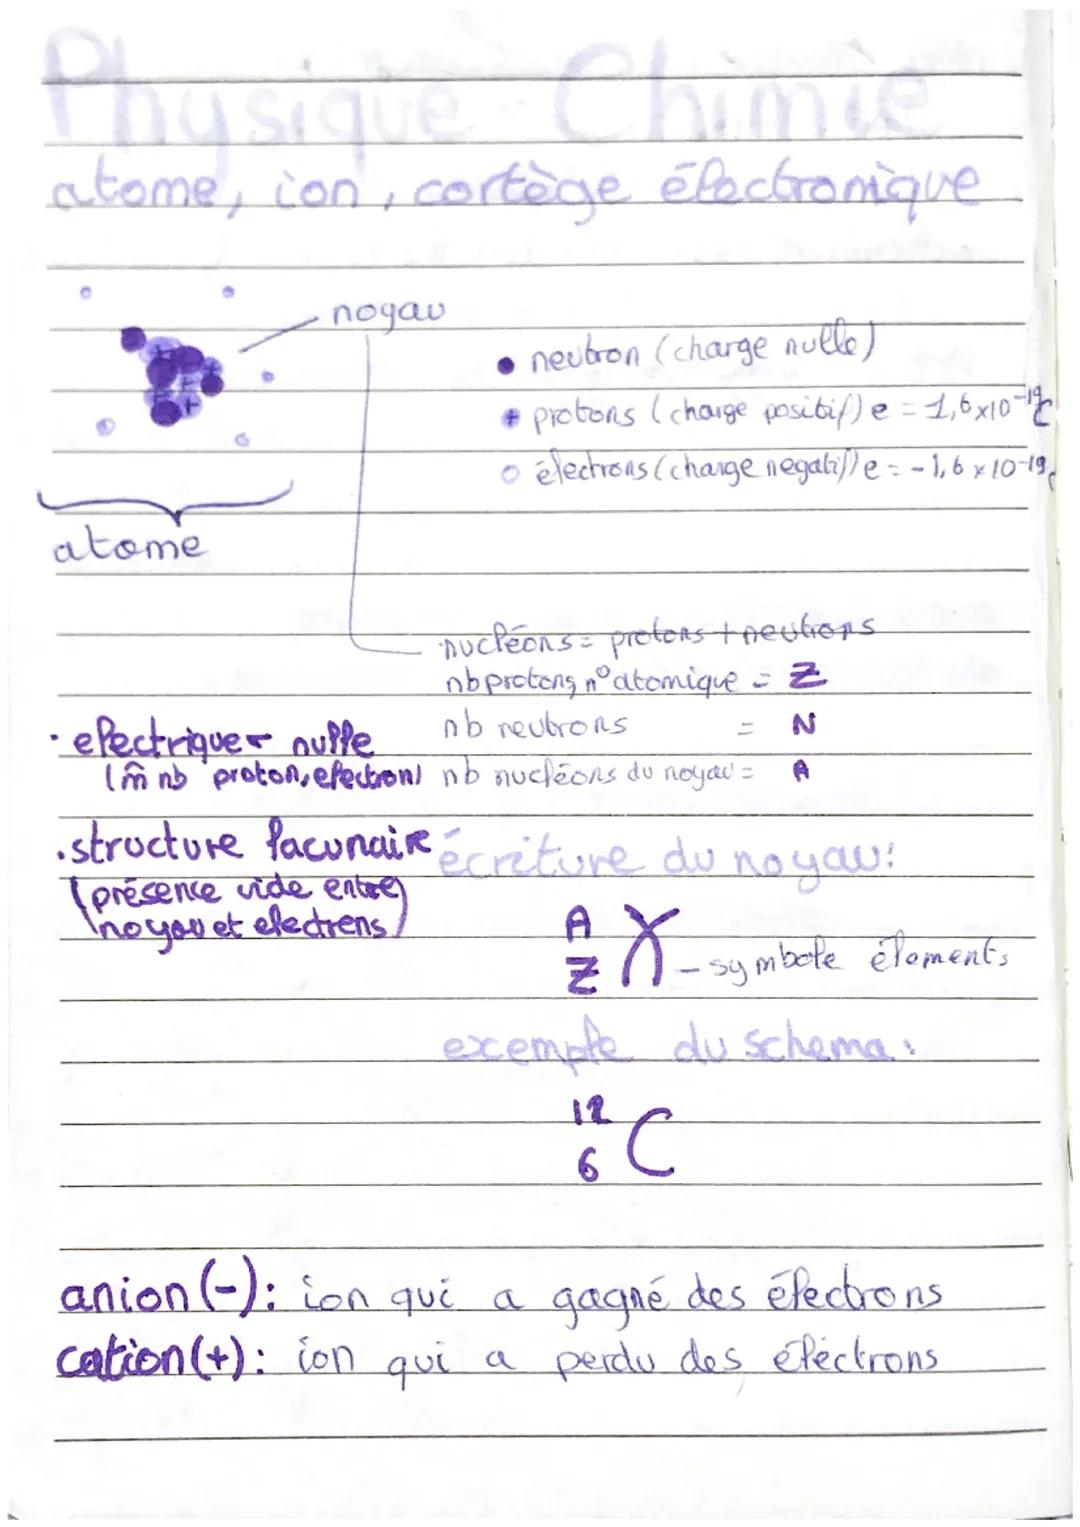 Physique Chimie
atome, ion, cortège électronique
noyau
neutron (charge nulle)
+ protons (charge positif) e = 1,6x10-19C
électrons (charge negatif) e = -1,6 x 10-19C
atome
nucléons = protons + neutrons
nb protons, n° atomique = Z
nb neutrons = N
nb nucléons du noyau = A
· electriquer nulle
(m̂ nb proton, electron)
. structure lacunaire
(présence vide entre
noyau et electrons)
écriture du noyau:
A
Z X - symbole éléments
exemple du schema:
12
6 C
anion (-): ion qui a gagné des électrons
cation (+): ion qui a perdu des électrons